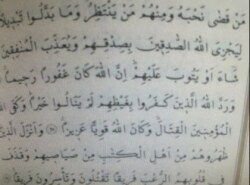 مَّن قَضَىٰ نَحْبَهُ وَمِنْهُم مَّن يَنتَظِرُ وَمَا بَدَّلُوا۟ تَبْدِيلًا
لِّيَجْزِىَ ٱللَّهُ ٱلصَّـٰدِقِينَ بِصِدْقِهِمْ وَيُعَذِّبَ ٱلْمُنَـٰفِقِينَ
شَآءَ أَوْ يَتُوبَ عَلَيْهِمْ إِنَّ ٱللَّهَ كَانَ غَفُورًا رَّحِيمًا
وَرَدَّ ٱللَّهُ ٱلَّذِينَ كَفَرُوا۟ بِغَيْظِهِمْ لَمْ يَنَالُوا۟ خَيْرًا وَكَفَى
ٱلْمُؤْمِنِينَ ٱلْقِتَالَ وَكَانَ ٱللَّهُ قَوِيًّا عَزِيزًا وَأَنزَلَ ٱلَّذِينَ
ظَـٰهَرُوهُم مِّنْ أَهْلِ ٱلْكِتَـٰبِ مِن صَيَاصِيهِمْ وَقَذَفَ
فِى قُلُوبِهِمُ ٱلرُّعْبَ فَرِيقًا تَقْتُلُونَ وَتَأْسِرُونَ فَرِيقًا